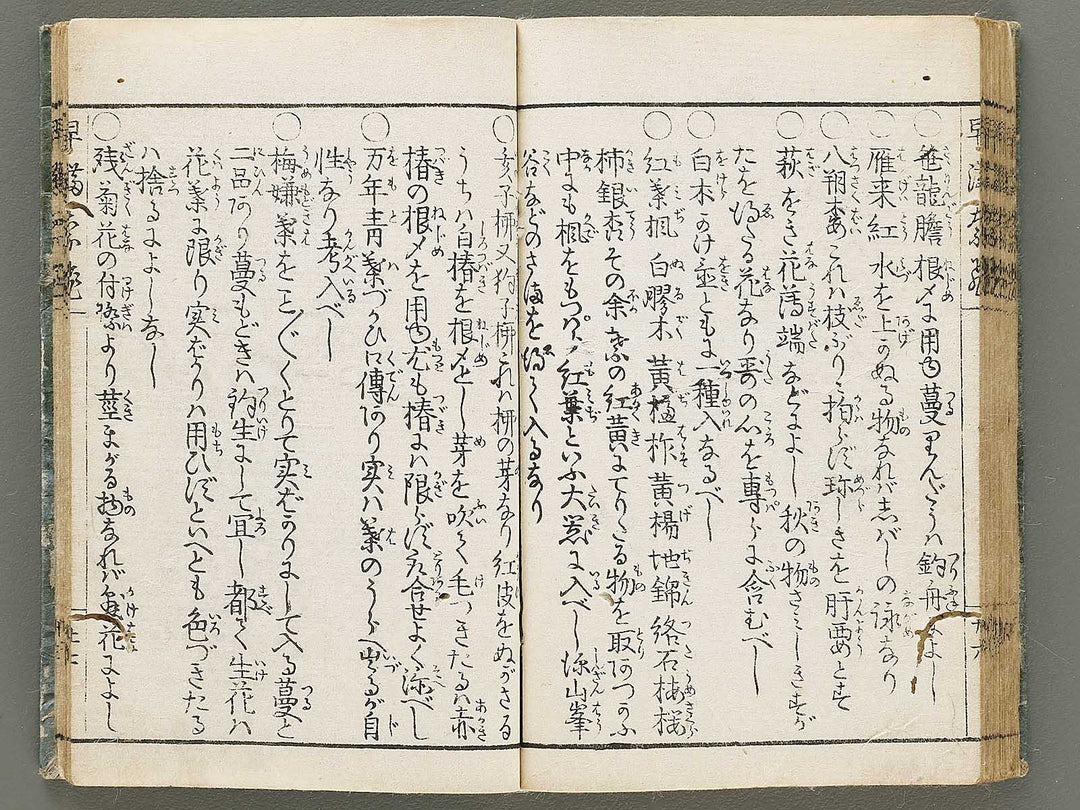 〇龍膽根〆に用ゆ蔓りんどうハ釣舟によし
〇雁来紅 水を上かぬる物なれバしバしの詠なり
〇八朔梅 これハ枝ぶりに拘らず珍しきを肝要とす
〇萩をき花薄端などによし秋の物さみしきすが
たを得たる花なり哥の心を専らに含むべし
〇白木かけ壺ともに一種入なるべし
〇紅葉楓 白膠木 黄櫨 柞 黄楊 地錦 絡石 梅 桜
柿 銀杏その余の紅黄にてりたる物を取あつかふ
中にも楓をもつパら紅葉といふ大器に入べし深山峯
谷などのさまを得て入るなり
〇猫子柳又狗子柳これハ柳の芽なり紅皮をぬがさる
うちハ白椿を根〆とし芽を吹て毛つきたるハ赤
椿の根〆を用ゆ尤も椿にハ限らず取合せよく添べし
〇万年青 葉づかひに口傳あり実ハ葉のうらへ出るが自
性なり考入べし
〇梅嫌 葉をこと〴〵くとりて実ばかりにして入る蔓と
二品あり蔓もどきハ釣生にして宜し都て生花ハ
花葉に限り実ばかりハ用ひずといへとも色づきたる
ハ捨るによしなし
〇残菊 花の付際より茎まがる物なれバ掛花によし